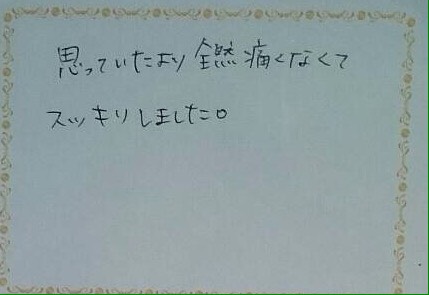 思っていたより全然痛くなくて
スッキリしました。